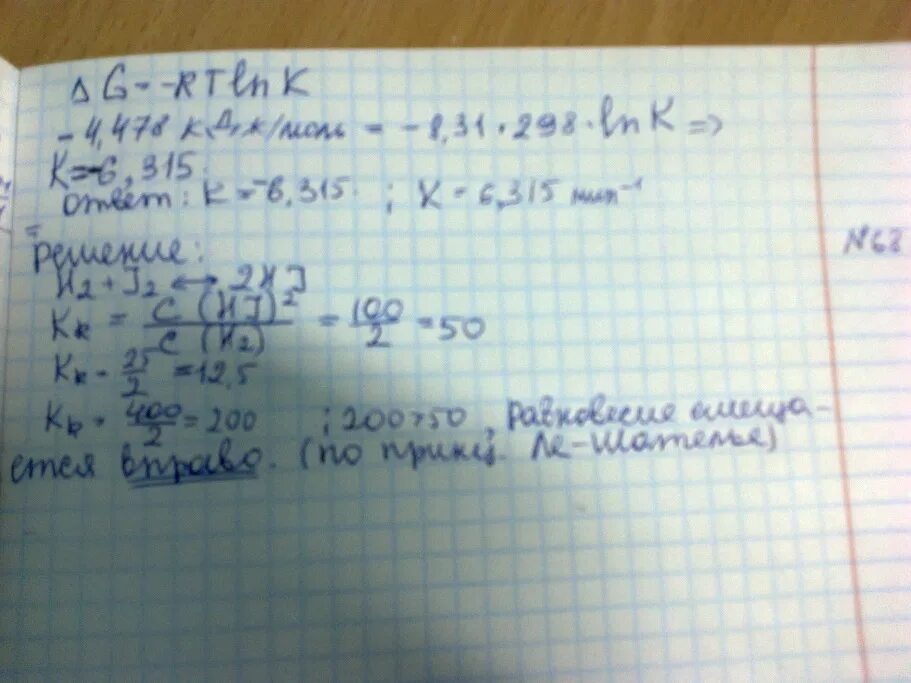 ΔG = -RTlnK
-4,478 кДж/моль = -8,31 • 298 • lnK =>
K = -6,315.
ответ: K = -6,315. ; K = 6,315 мин⁻¹
Решение:
H₂ + J₂ ↔ 2HJ
Kк = C (HJ)² / C (H₂) = 100/2 = 50
Kк = 25/2 = 12,5
Kк = 400/2 = 200 ; 200>50, равновесие смеща-
ется вправо. (по принц. Ле-Шателье)
№68